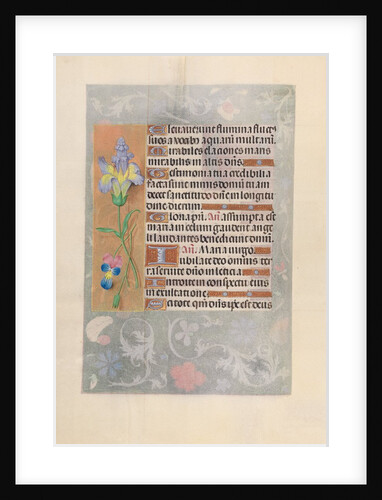 Eleuauerunt flumina fluct⁹
suos a vocib⁹ aquarū multarū.
Mirabiles elaciones maris
mirabilis in altis dñs.
Testimonia tua credibilia
facta sunt nimis domū tuam
decet sanctitudo dñe in longitu
dine dierum.
Gloria pr̄i. Añ. Assumpta est
maria in celum gaudent ange
li laudantes benedicunt dñm.
Añ. Maria virgo.
Iubilate deo omnis ter
ra seruite dño in leticia
Introite in conspectu eius
in exultatione
Scitote qm̄ dñs ip̄e est deus